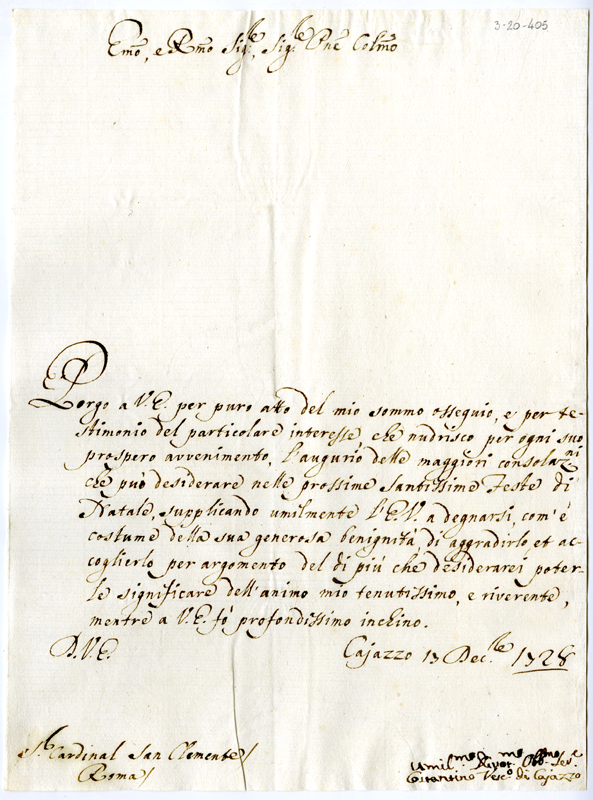 3-20-405
Emo, e Rmo Sig.re, Sig.re Pne Colmo
Porgo a V.E. per puro atto del mio sommo ossequio, e per te-
stimonio del particolare interesse, che nudrisco per ogni suo
prospero avvenimento, l'augurio delle maggiori consolaz.ni
che può desiderare nelle prossime Santissime Feste di
Natale, supplicando umilmente l'E.V. a degnarsi, com'è
costume della sua generosa benignità, di aggradirlo, et ac-
coglierlo per argomento del di più che desiderarei poter-
le significare dell'animo mio tenutissimo, e riverente,
mentre a V.E. fò profondissimo inchino.
D.V.E. Cajazzo 13 Dec.re 1728
S.r Cardinal San Clemente
Roma
Umil.mo Divot.mo Obb.mo Ser.e
Costantino Vesc.o di Cajazzo